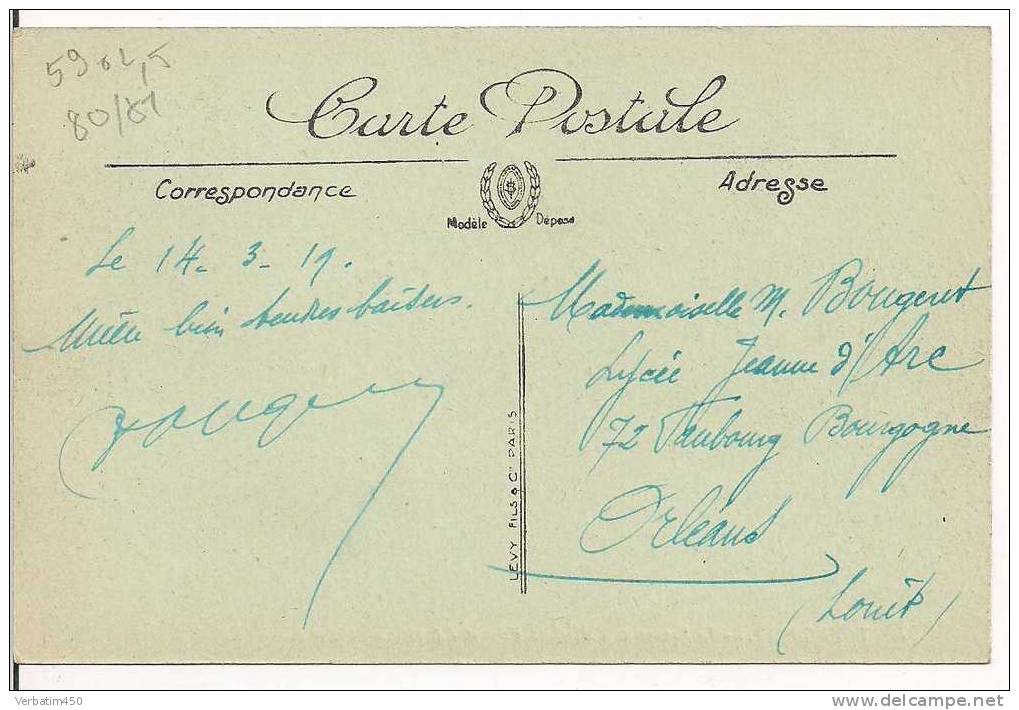 5902,5
80/81
Carte Postale
Correspondance
Adresse
Modèle Déposé
Le 14-3-19.
bien tendres baisers.
Mademoiselle M. Bougeret
Lycée Jeanne d'Arc
72 Faubourg Bourgogne
Orléans
(Loiret)
LEVY FILS & Cie PARIS
Verbatim450
http://www.delcampe.net